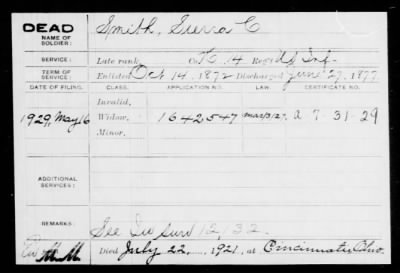 DEAD
NAME OF SOLDIER: Smith, Sierra C
SERVICE: Late rank, Co. K, 14 Reg't US Inf.
TERM OF SERVICE: Enlisted Oct 14, 1872 Discharged June 27, 1877
DATE OF FILING. CLASS. APPLICATION NO. LAW. CERTIFICATE NO.
Invalid,
1929, May 16 Widow, 1642547 Mar 3/27, a 7 31 29
Minor,
ADDITIONAL SERVICES:
REMARKS: See Sur 12132
Died July 22, 1921, at Cincinnati Ohio.